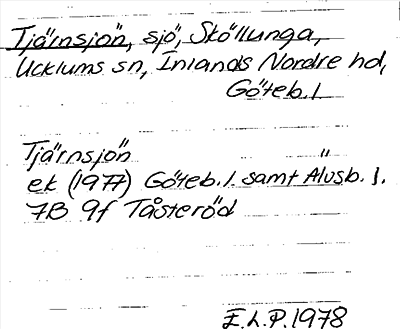 Tjärnsjön, sjö, Sköllunga,
Ucklums sn, Inlands Nordre hd,
Göteb. l
Tjärnsjön
ek (1977) Göteb. l. samt Älvsb. l.
7B 9f Tåsteröd
E.L.P. 1978